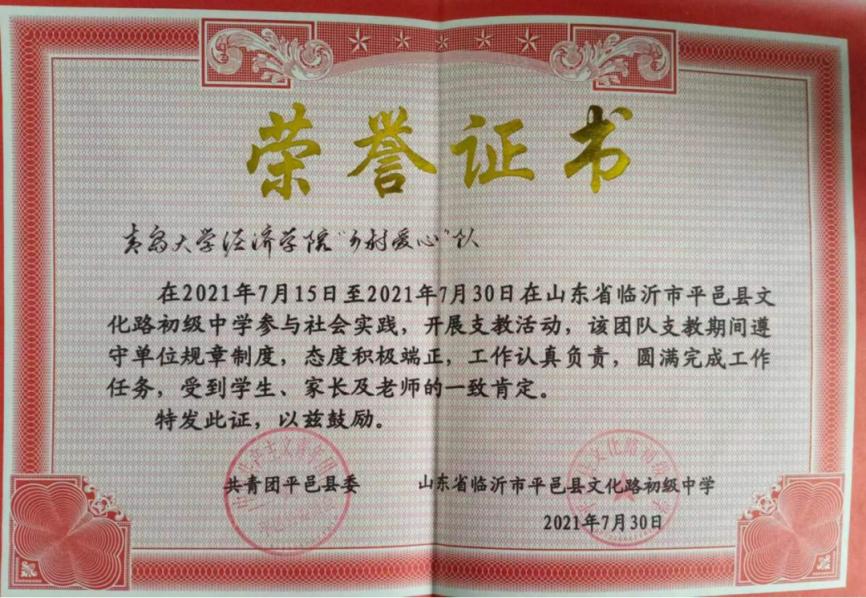 荣誉证书
青岛大学经济学院“乡村爱心”队
在2021年7月15日至2021年7月30日在山东省临沂市平邑县文
化路初级中学参与社会实践，开展支教活动，该团队支教期间遵
守单位规章制度，态度积极端正，工作认真负责，圆满完成工作
任务，受到学生、家长及老师的一致肯定。
特发此证，以兹鼓励。
共青团平邑县委 山东省临沂市平邑县文化路初级中学
2021年7月30日